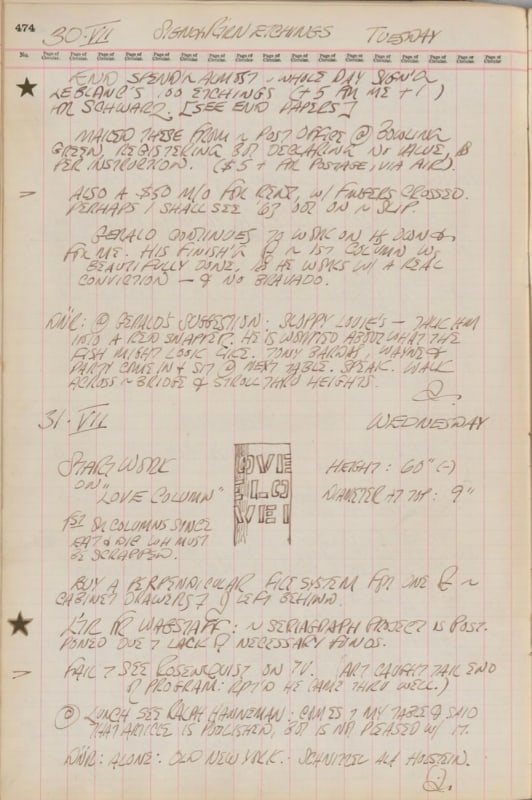 474
30·VII SIGN LE PLRN ETCHINGS TUESDAY
No. Page of Circular. Page of Circular. Page of Circular. Page of Circular. Page of Circular. Page of Circular. Page of Circular. Page of Circular. Page of Circular. Page of Circular. Page of Circular. Page of Circular.
END SPEND'G ALMOST ~ WHOLE DAY SIGN'G
LEBLANC'S 100 ETCHINGS (+5 FOR ME +1)
FOR SCHWARZ. [SEE END PAPERS]
MAILED THESE FROM ~ POST OFFICE @ BOWLING
GREEN, REGISTERING BUT DECLARING NO VALUE, AS
PER INSTRUCTION. ($5+ FOR POSTAGE, VIA AIR).
ALSO A $50 M/O FOR RENT, W/ FINGERS CROSSED.
PERHAPS I SHALL SEE '63 OUT ON ~ SLIP.
GERALD CONTINUES TO WORK ON
FOR ME. HIS FINISH'G OF ~ 1ST COLUMN W.
BEAUTIFULLY DONE, AS HE WORKS W/ A REAL
CONVICTION — & NO BRAVADO.
DNR: @ GERALD'S SUGGESTION: SLOPPY LOUIE'S — TALK HIM
INTO A RED SNAPPER. HE IS WORRIED ABOUT WHAT THE
FISH MIGHT LOOK LIKE. TONY BARDAY, WAYNE &
PARTY COME IN & SIT @ NEXT TABLE. SPEAK. WALK
ACROSS ~ BRIDGE & STROLL THRU HEIGHTS.
31·VII WEDNESDAY
START WORK
ON
"LOVE COLUMN"
LOVE
LO
VE
HEIGHT: 60" (-)
DIAMETER AT TOP: 9"
1ST OF COLUMNS SINCE
EAT & DIE WH MUST
BE SCRAPPED.
BUY A PERPENDICULAR FILE SYSTEM FOR ONE OF ~
CABINET DRAWERS LEFT BEHIND.
LTR FR WAGSTAFF: ~ SERIAGRAPH PROJECT IS POST-
PONED DUE TO LACK OF NECESSARY FUNDS.
FAIL TO SEE ROSENQUIST ON TV. (ART CAUGHT TAIL END
OF PROGRAM: RPT'D HE CAME THRU WELL.)
@ LUNCH SEE RALPH HANNEMAN: COMES TO MY TABLE & SAID
THAT ARTICLE IS PUBLISHED, BUT IS NOT PLEASED W/ IT.
DNR: ALONE: OLD NEW YORK. SCHNITZEL ALA HOLSTEIN.